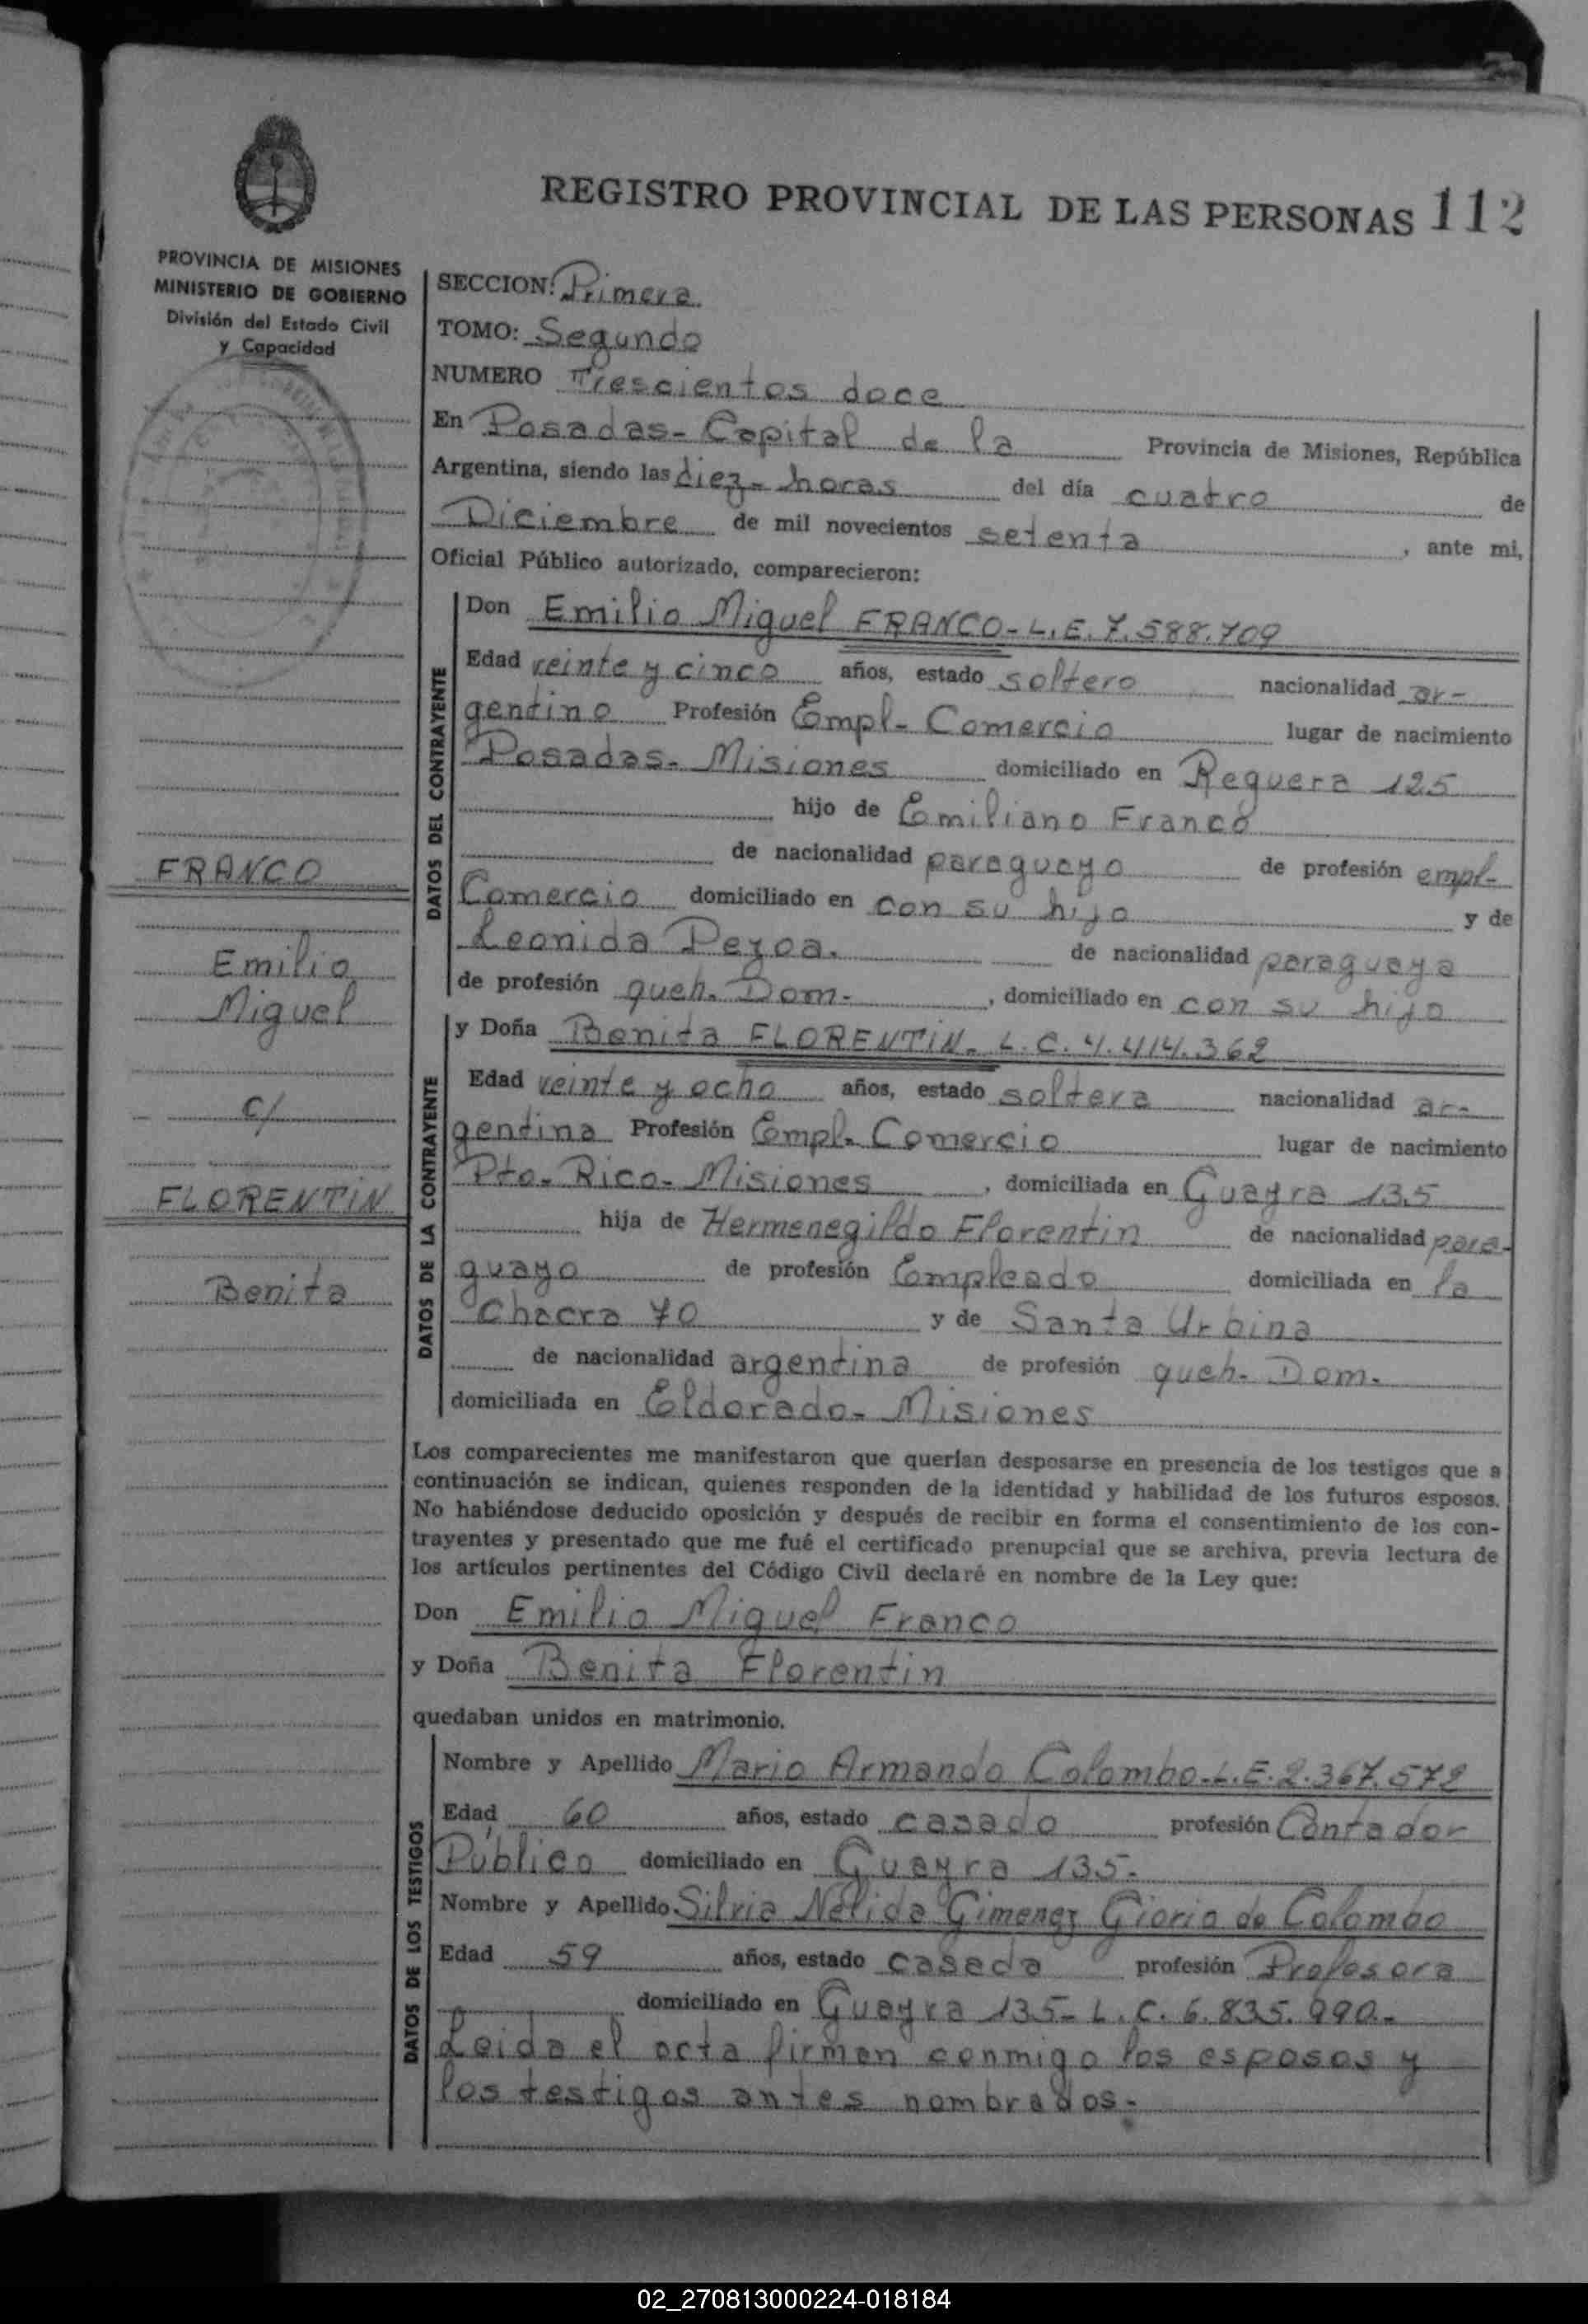 REGISTRO PROVINCIAL DE LAS PERSONAS 112
PROVINCIA DE MISIONES
MINISTERIO DE GOBIERNO
División del Estado Civil
y Capacidad
FRANCO
Emilio
Miguel
c/
FLORENTIN
Benita
SECCION: Primera
TOMO: Segundo
NUMERO Trescientos doce
En Posadas- Capital de la Provincia de Misiones, República
Argentina, siendo las diez- horas del día cuatro de
Diciembre de mil novecientos setenta, ante mi,
Oficial Público autorizado, comparecieron:
DATOS DEL CONTRAYENTE
Don Emilio Miguel FRANCO- L.E. 7.588.709
Edad veinte y cinco años, estado soltero nacionalidad ar-
gentino Profesión Empl- Comercio lugar de nacimiento
Posadas- Misiones domiciliado en Reguera 125
hijo de Emiliano Franco
de nacionalidad paraguayo de profesión empl-
Comercio domiciliado en con su hijo y de
Leonida Pezoa. de nacionalidad paraguaya
de profesión queh. Dom-, domiciliado en con su hijo
DATOS DE LA CONTRAYENTE
y Doña Benita FLORENTIN- L.C. 4.414.362
Edad veinte y ocho años, estado soltera nacionalidad ar-
gentina Profesión Empl. Comercio lugar de nacimiento
Pto- Rico- Misiones, domiciliada en Guayra 135
hija de Hermenegildo Florentin de nacionalidad para-
guayo de profesión Empleado domiciliada en la
Chacra 70 y de Santa Urbina
de nacionalidad argentina de profesión queh- Dom-
domiciliada en Eldorado- Misiones
Los comparecientes me manifestaron que querían desposarse en presencia de los testigos que a
continuación se indican, quienes responden de la identidad y habilidad de los futuros esposos.
No habiéndose deducido oposición y después de recibir en forma el consentimiento de los con-
trayentes y presentado que me fué el certificado prenupcial que se archiva, previa lectura de
los artículos pertinentes del Código Civil declaré en nombre de la Ley que:
Don Emilio Miguel Franco
y Doña Benita Florentin
quedaban unidos en matrimonio.
DATOS DE LOS TESTIGOS
Nombre y Apellido Mario Armando Colombo- L.E. 2.367.572
Edad 60 años, estado casado profesión Contador
Público domiciliado en Guayra 135-
Nombre y Apellido Silvia Nélida Gimenez Giorio de Colombo
Edad 59 años, estado casada profesión Profesora
domiciliado en Guayra 135- L.C. 6.835.990.-
Leida el acta firman conmigo los esposos y
los testigos antes nombrados.-
02_270813000224-018184